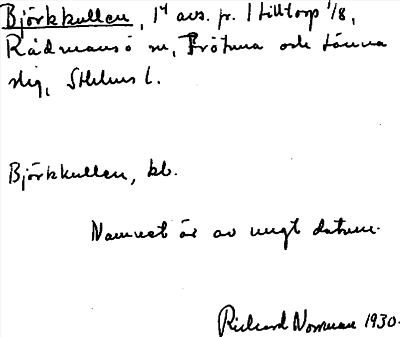 Björkkullen, 1⁴ avs. fr. 1 Lilltorp 1/8,
Rådmansö sn, Frötuna och Länna
slg, Sthlms l.
Björkkullen, kb.
Namnet är av ungt datum.
Rickard Norrman 1930.